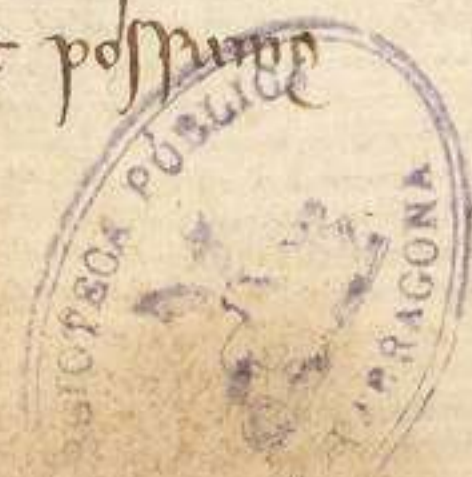 possumus
BIBLIOTECA PÚBLICA
TARRAGONA